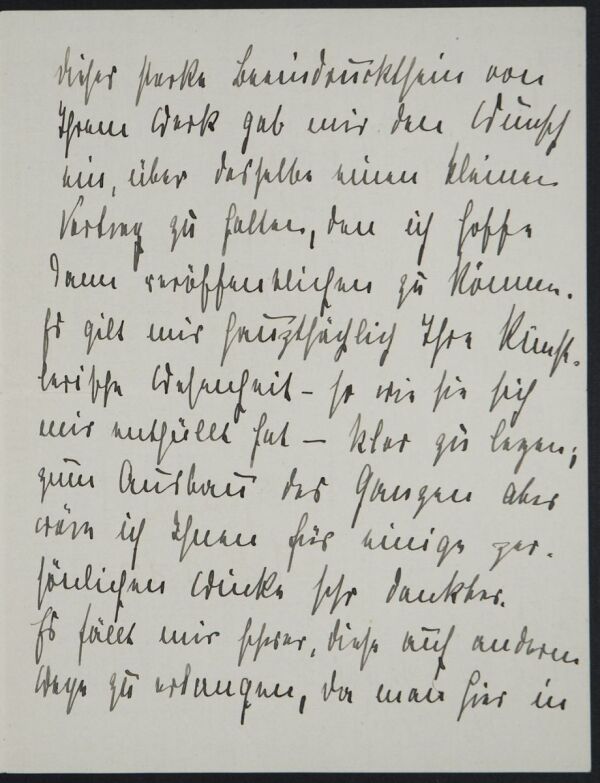 dieses starke Beeindrucktsein von
Ihrem Werk gab mir den Wunsch
ein, über dasselbe einen kleinen
Vortrag zu halten, den ich hoffe
dann veröffentlichen zu können.
Es gilt mir hauptsächlich Ihre künst-
lerische Wesenheit – so wie sie sich
mir enthüllt hat – klar zu legen;
zum Ausbau des Ganzen aber
wäre ich Ihnen für einige per-
sönlichen Winke sehr dankbar.
Es fällt mir schwer, diese auf anderem
Wege zu erlangen, da man hier in